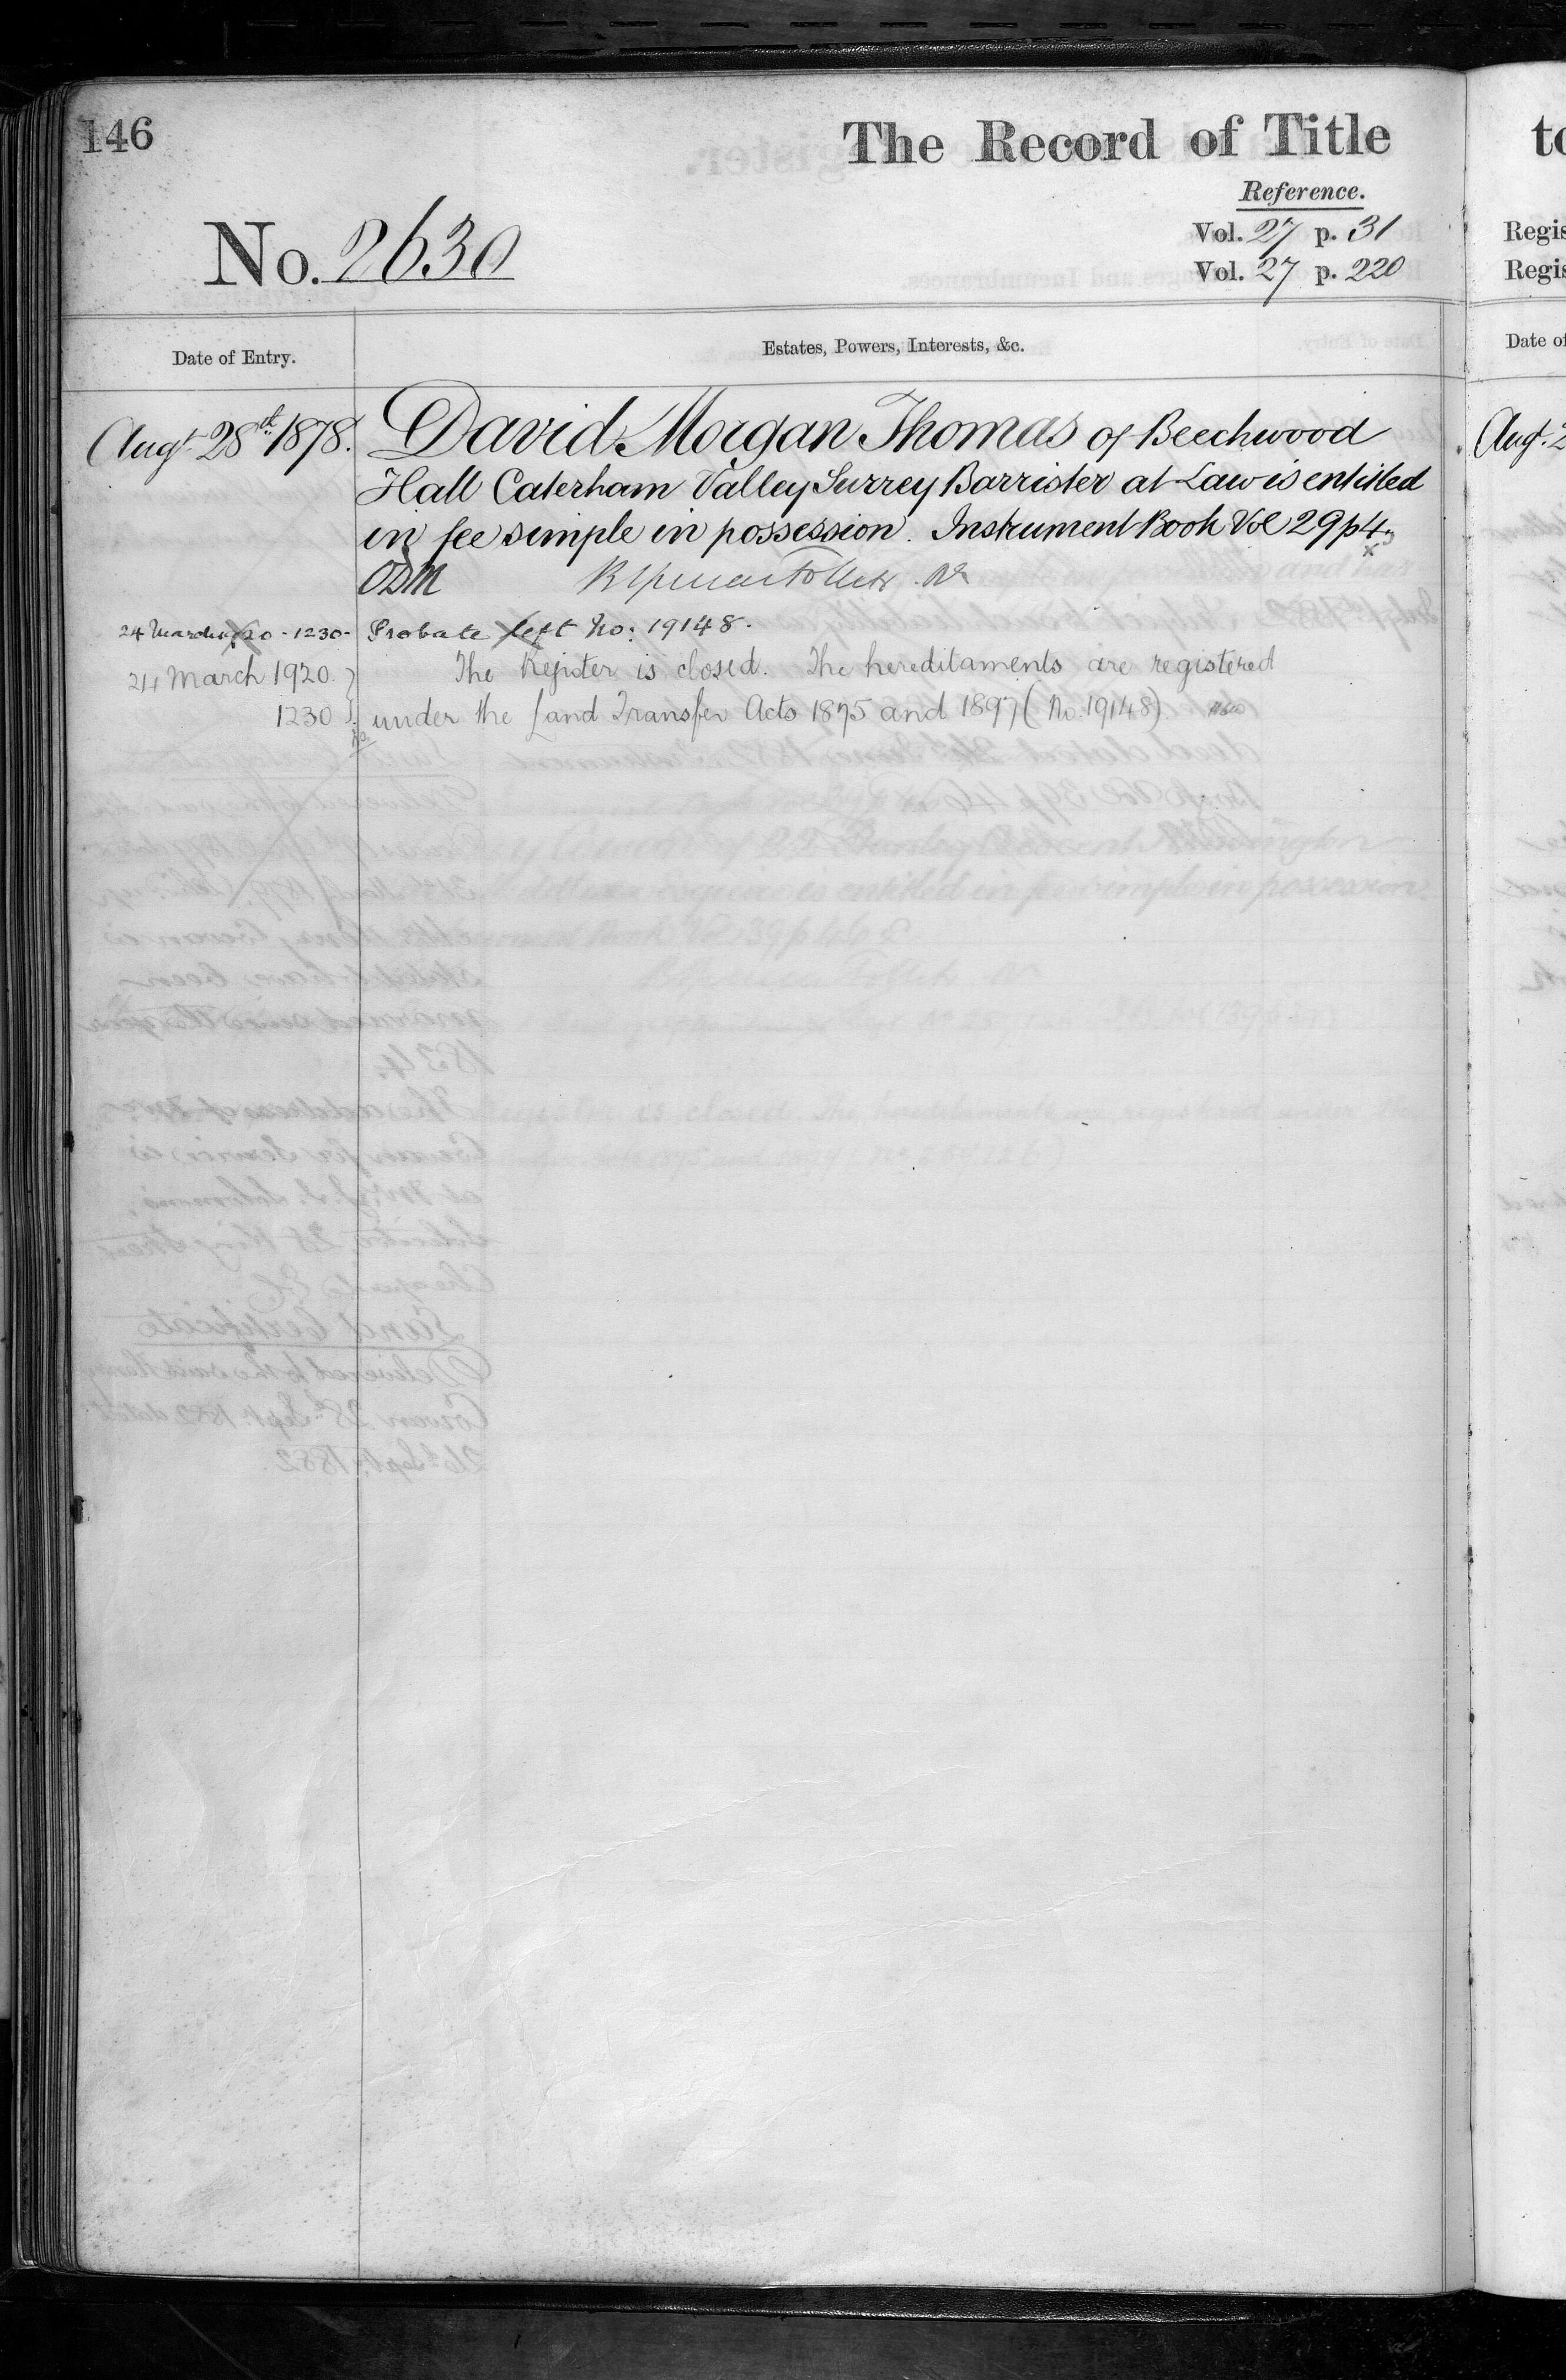 146
The Record of Title
Reference.
Vol. 27 p. 31
No. 2630
Vol. 27 p. 220
Date of Entry.
Estates, Powers, Interests, &c.
Augt. 28th 1878. David Morgan Thomas of Beechwood
Hall Caterham Valley Surrey Barrister at Law is entitled
in fee simple in possession. Instrument Book Vol 29 p 4
24 March 1920 - 1230 - Probate left No: 19148.
24 March 1920. The Register is closed. The hereditaments are registered
1230 under the Land Transfer Acts 1875 and 1897 (No. 19148)
to
Regis
Regis
Date of
Augt. 2